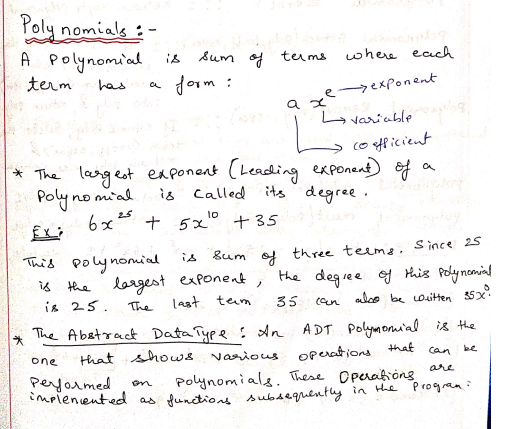 Polynomials :-
A Polynomial is sum of terms where each
term has a form :
a x^e → exponent
→ variable
→ coefficient
* The largest exponent (Leading exponent) of a
Polynomial is called its degree.
Ex: 6x^25 + 5x^10 + 35
This polynomial is sum of three terms. Since 25
is the largest exponent, the degree of this polynomial
is 25. The last term 35 can also be written 35x^0.
* The Abstract DataType : An ADT Polynomial is the
one that shows various operations that can be
performed on polynomials. These Operations are
implemented as functions subsequently in the Program: